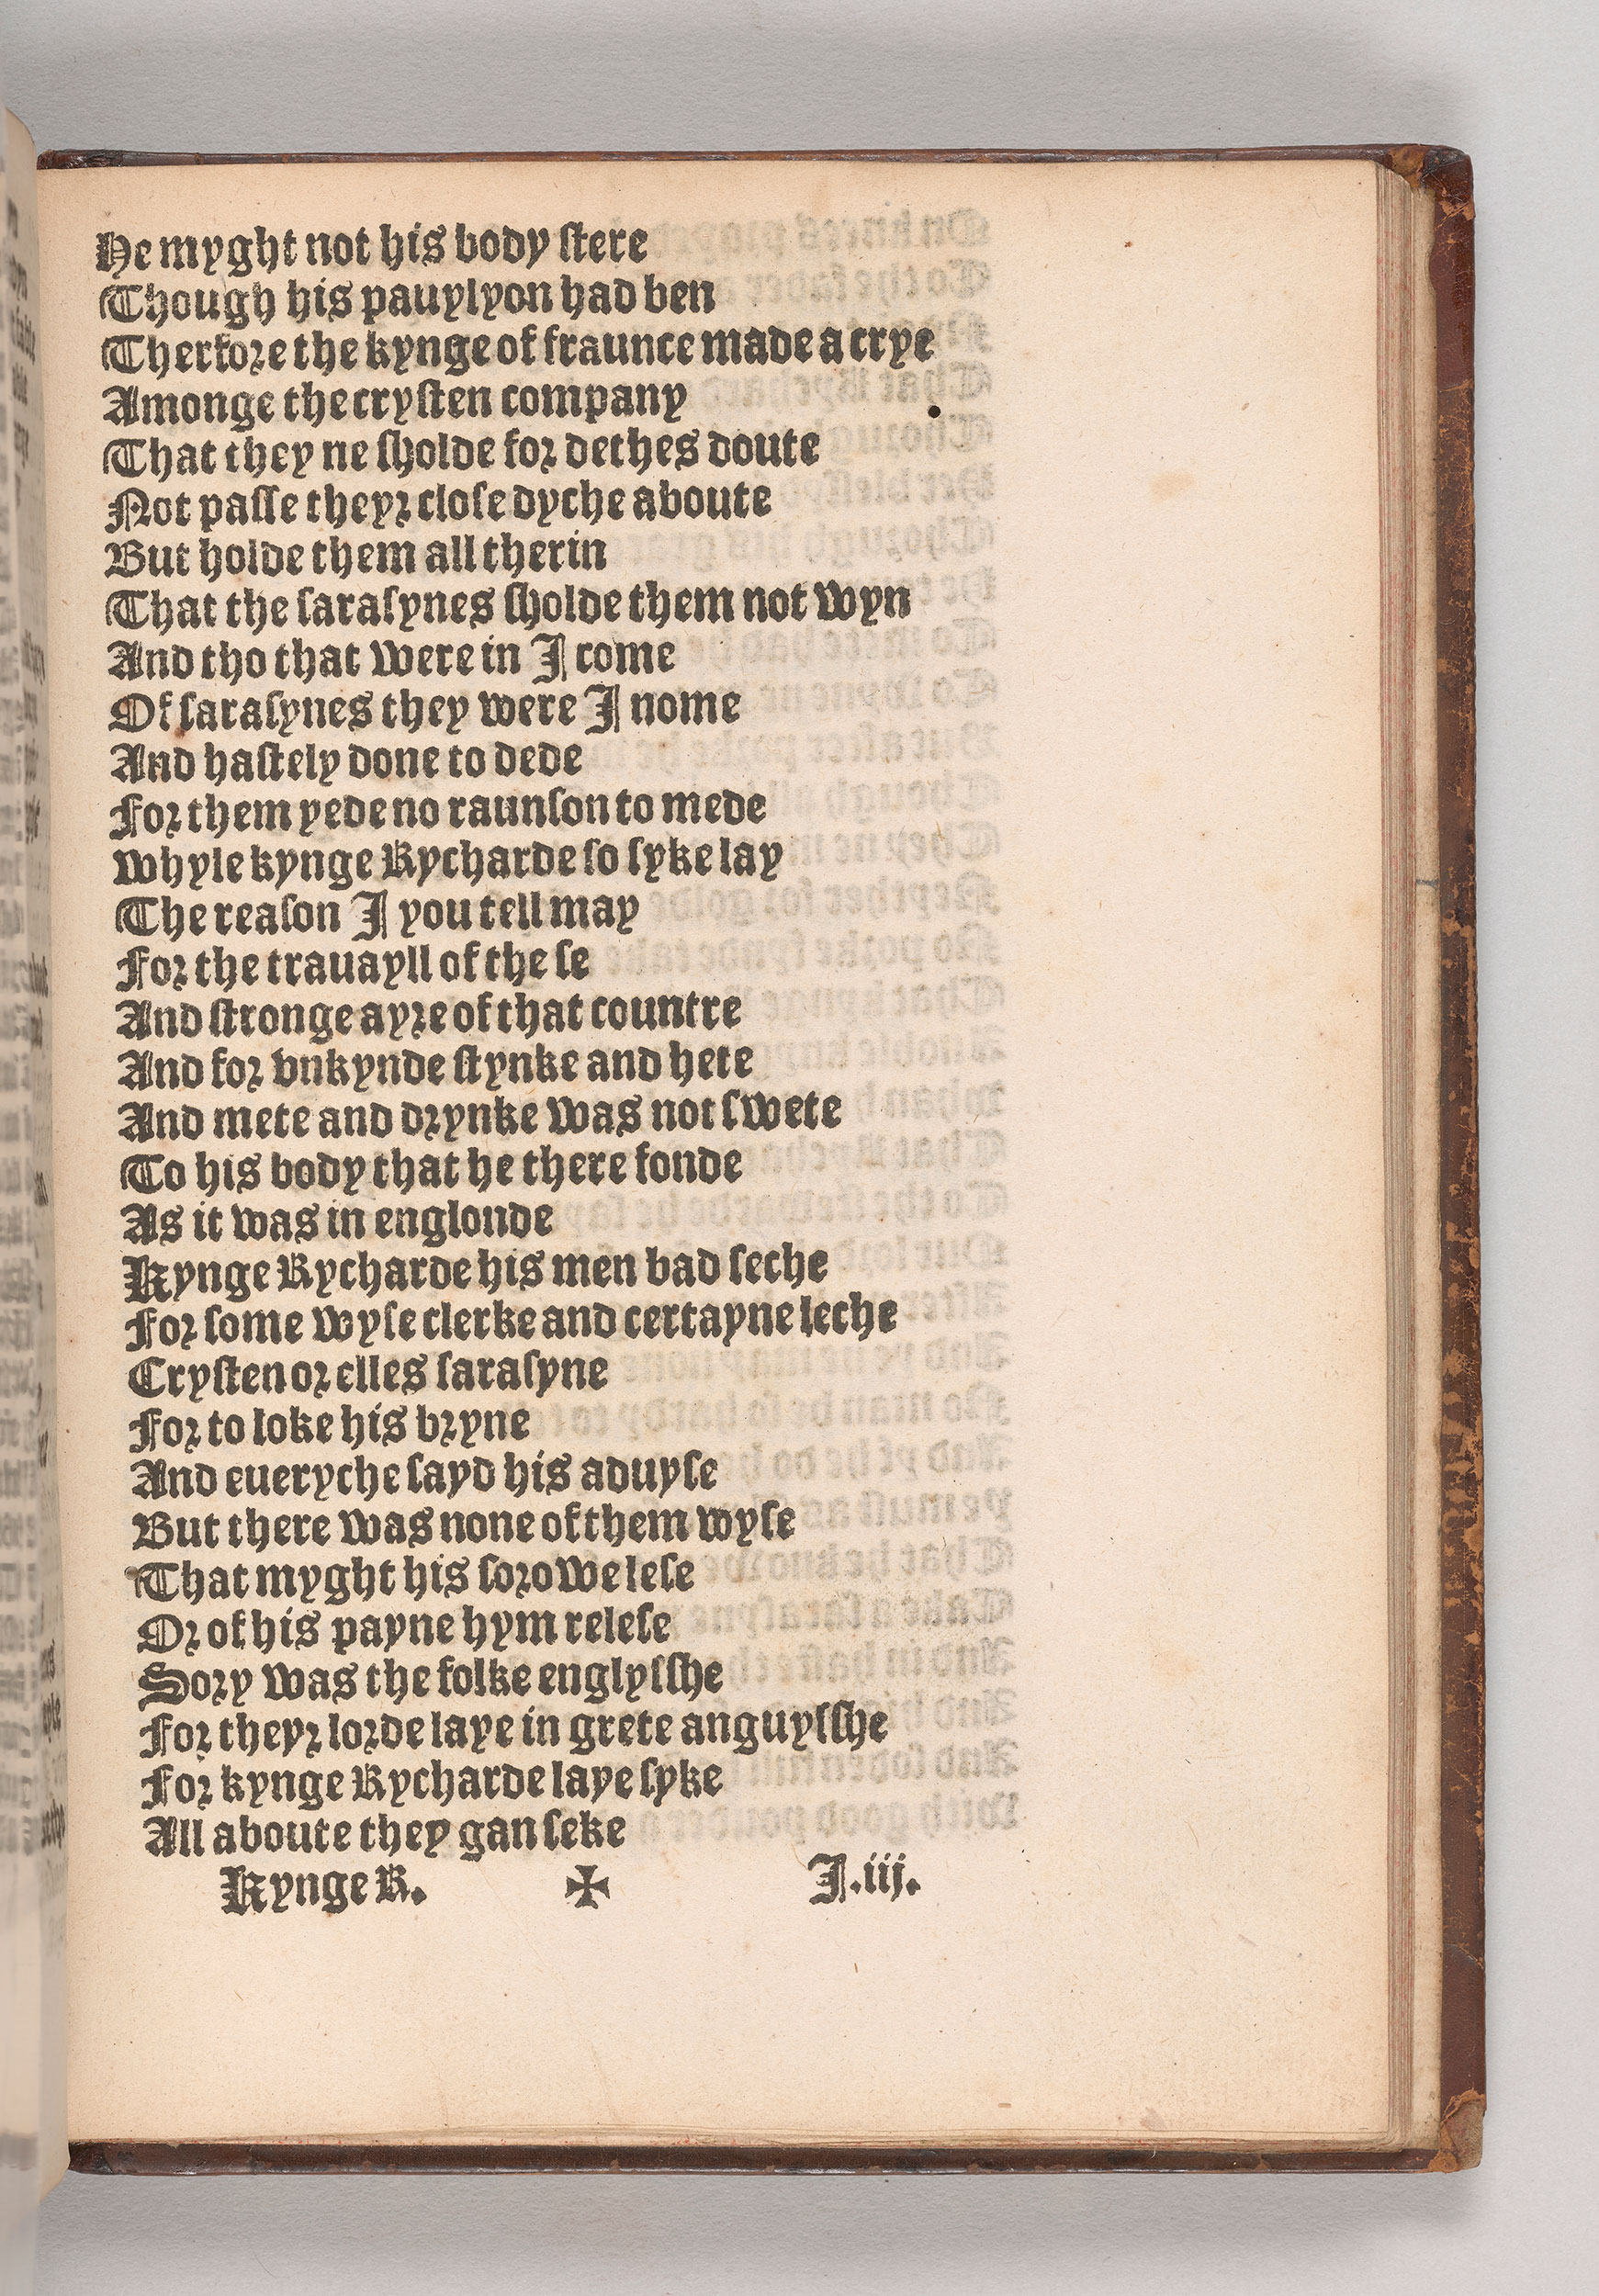 He myght not his body stere
Though his pauylyon had ben
Therfore the kynge of fraunce made a crye
Amonge the crysten company
That they ne sholde for dethes doute
Not passe theyr close dyche aboute
But holde them all therin
That the sarasynes sholde them not wyn
And tho that were in I come
Of sarasynes they were I nome
And hastely done to dede
For them yede no raunson to mede
Whyle kynge Rycharde so syke lay
The reason I you tell may
For the trauayll of the se
And stronge ayre of that countre
And for vnkynde stynke and hete
And mete and drynke was not swete
To his body that he there fonde
As it was in englonde
Kynge Rycharde his men bad seche
For some wyse clerke and certayne leche
Crysten or elles sarasyne
For to loke his bryne
And eueryche sayd his aduyse
But there was none of them wyse
That myght his sorowe lese
Or of his payne hym relese
Sory was the folke englysshe
For theyr lorde laye in grete anguysshe
For kynge Rycharde laye syke
All aboute they gan seke
Kynge R. ✠ I.iij.